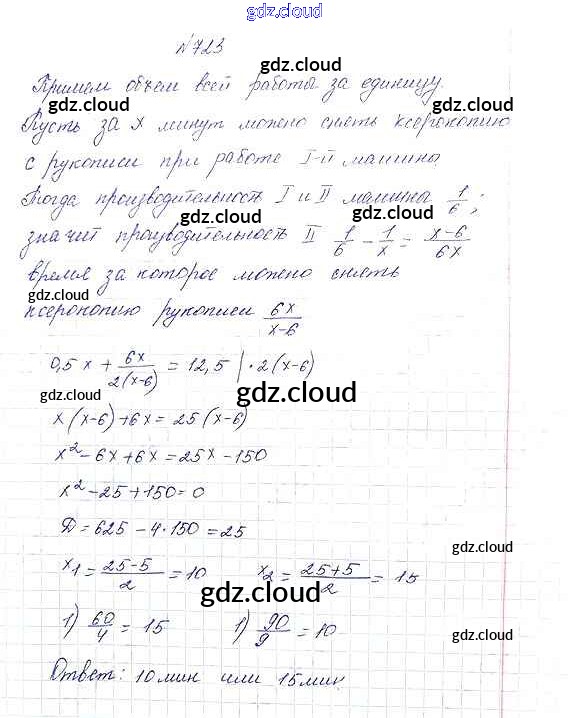 gdz.cloud
№723
gdz.cloud
Примем объем всей работы за единицу.
gdz.cloud gdz.cloud
Пусть за x минут можно снять ксерокопию
с рукописи при работе I-й машины.
gdz.cloud
Тогда производительность I и II машины 1/6;
gdz.cloud
значит производительность II 1/6 - 1/x = (x-6)/6x
время за которое можно снять
gdz.cloud gdz.cloud
ксерокопию рукописи 6x/(x-6)
0,5x + 6x/(2(x-6)) = 12,5 | ·2(x-6)
gdz.cloud gdz.cloud
x(x-6)+6x = 25(x-6)
x² - 6x + 6x = 25x - 150
x² - 25 + 150 = 0
Д = 625 - 4·150 = 25
gdz.cloud
x₁ = (25-5)/2 = 10 x₂ = (25+5)/2 = 15
gdz.cloud
1) 60/4 = 15 1) 90/9 = 10
gdz.cloud gdz.cloud
Ответ: 10 мин или 15 мин
gdz.cloud